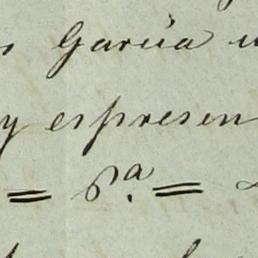 Garcia
y espresen
= Sª. =